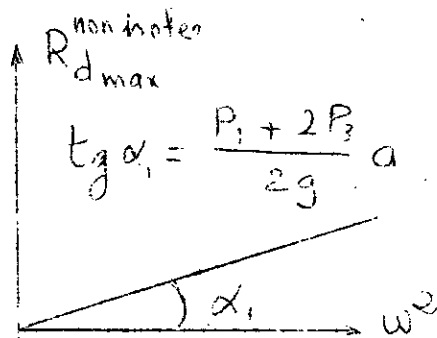 R_{d max}^{non inoter}
tg α₁ = \frac{P₁ + 2P₃}{2g} a
α₁
ω²